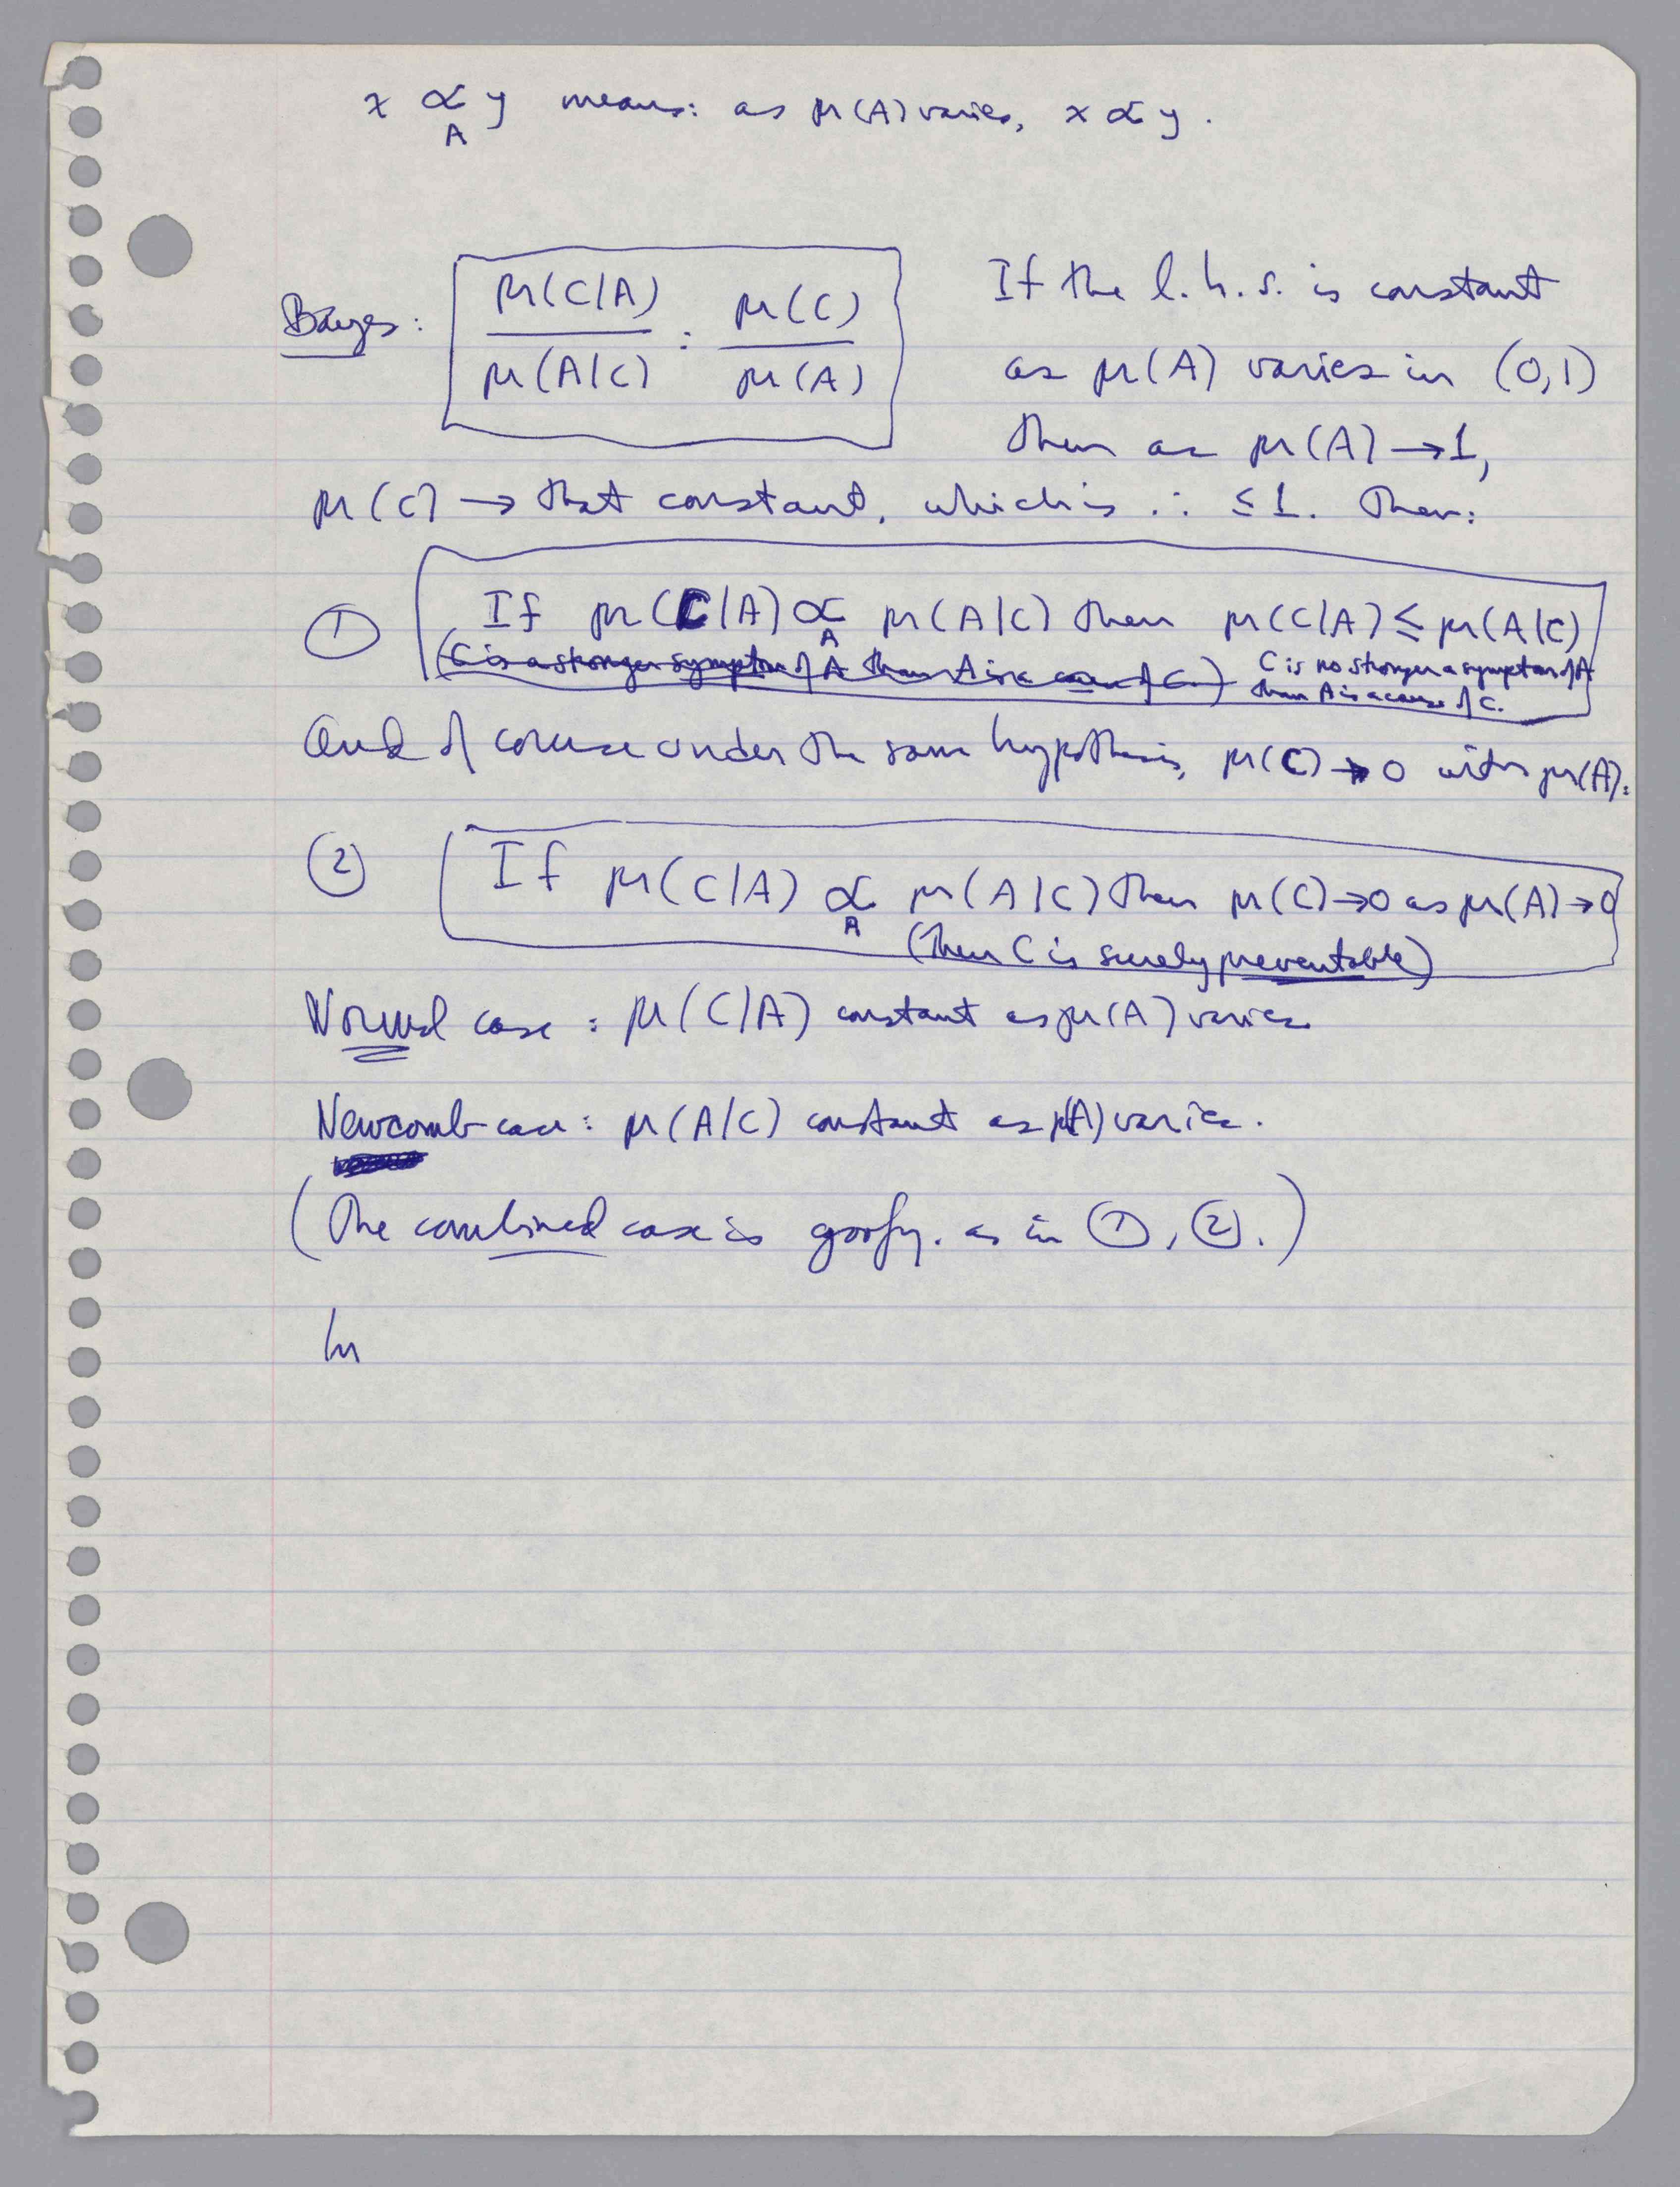 x ∝ y means: as μ(A) varies, x ∝ y.
A
Bayes: μ(C/A) / μ(A/C) = μ(C) / μ(A)
If the l.h.s. is constant
as μ(A) varies in (0,1)
then as μ(A) → 1,
μ(C) → that constant, which is ∴ ≤ 1. Then:
① If μ(C/A) ∝ μ(A/C) then μ(C/A) ≤ μ(A/C)
A
(C is a stronger symptom of A than A is a cause of C) C is no stronger a symptom of A
than A is a cause of C.
And of course under the same hypothesis, μ(C) → 0 with μ(A):
② If μ(C/A) ∝ μ(A/C) then μ(C) → 0 as μ(A) → 0
A
(Then C is surely preventable)
Normal case: μ(C/A) constant as μ(A) varies
Newcomb case: μ(A/C) constant as μ(A) varies.
(The combined case is goofy, as in ①, ②.)
In